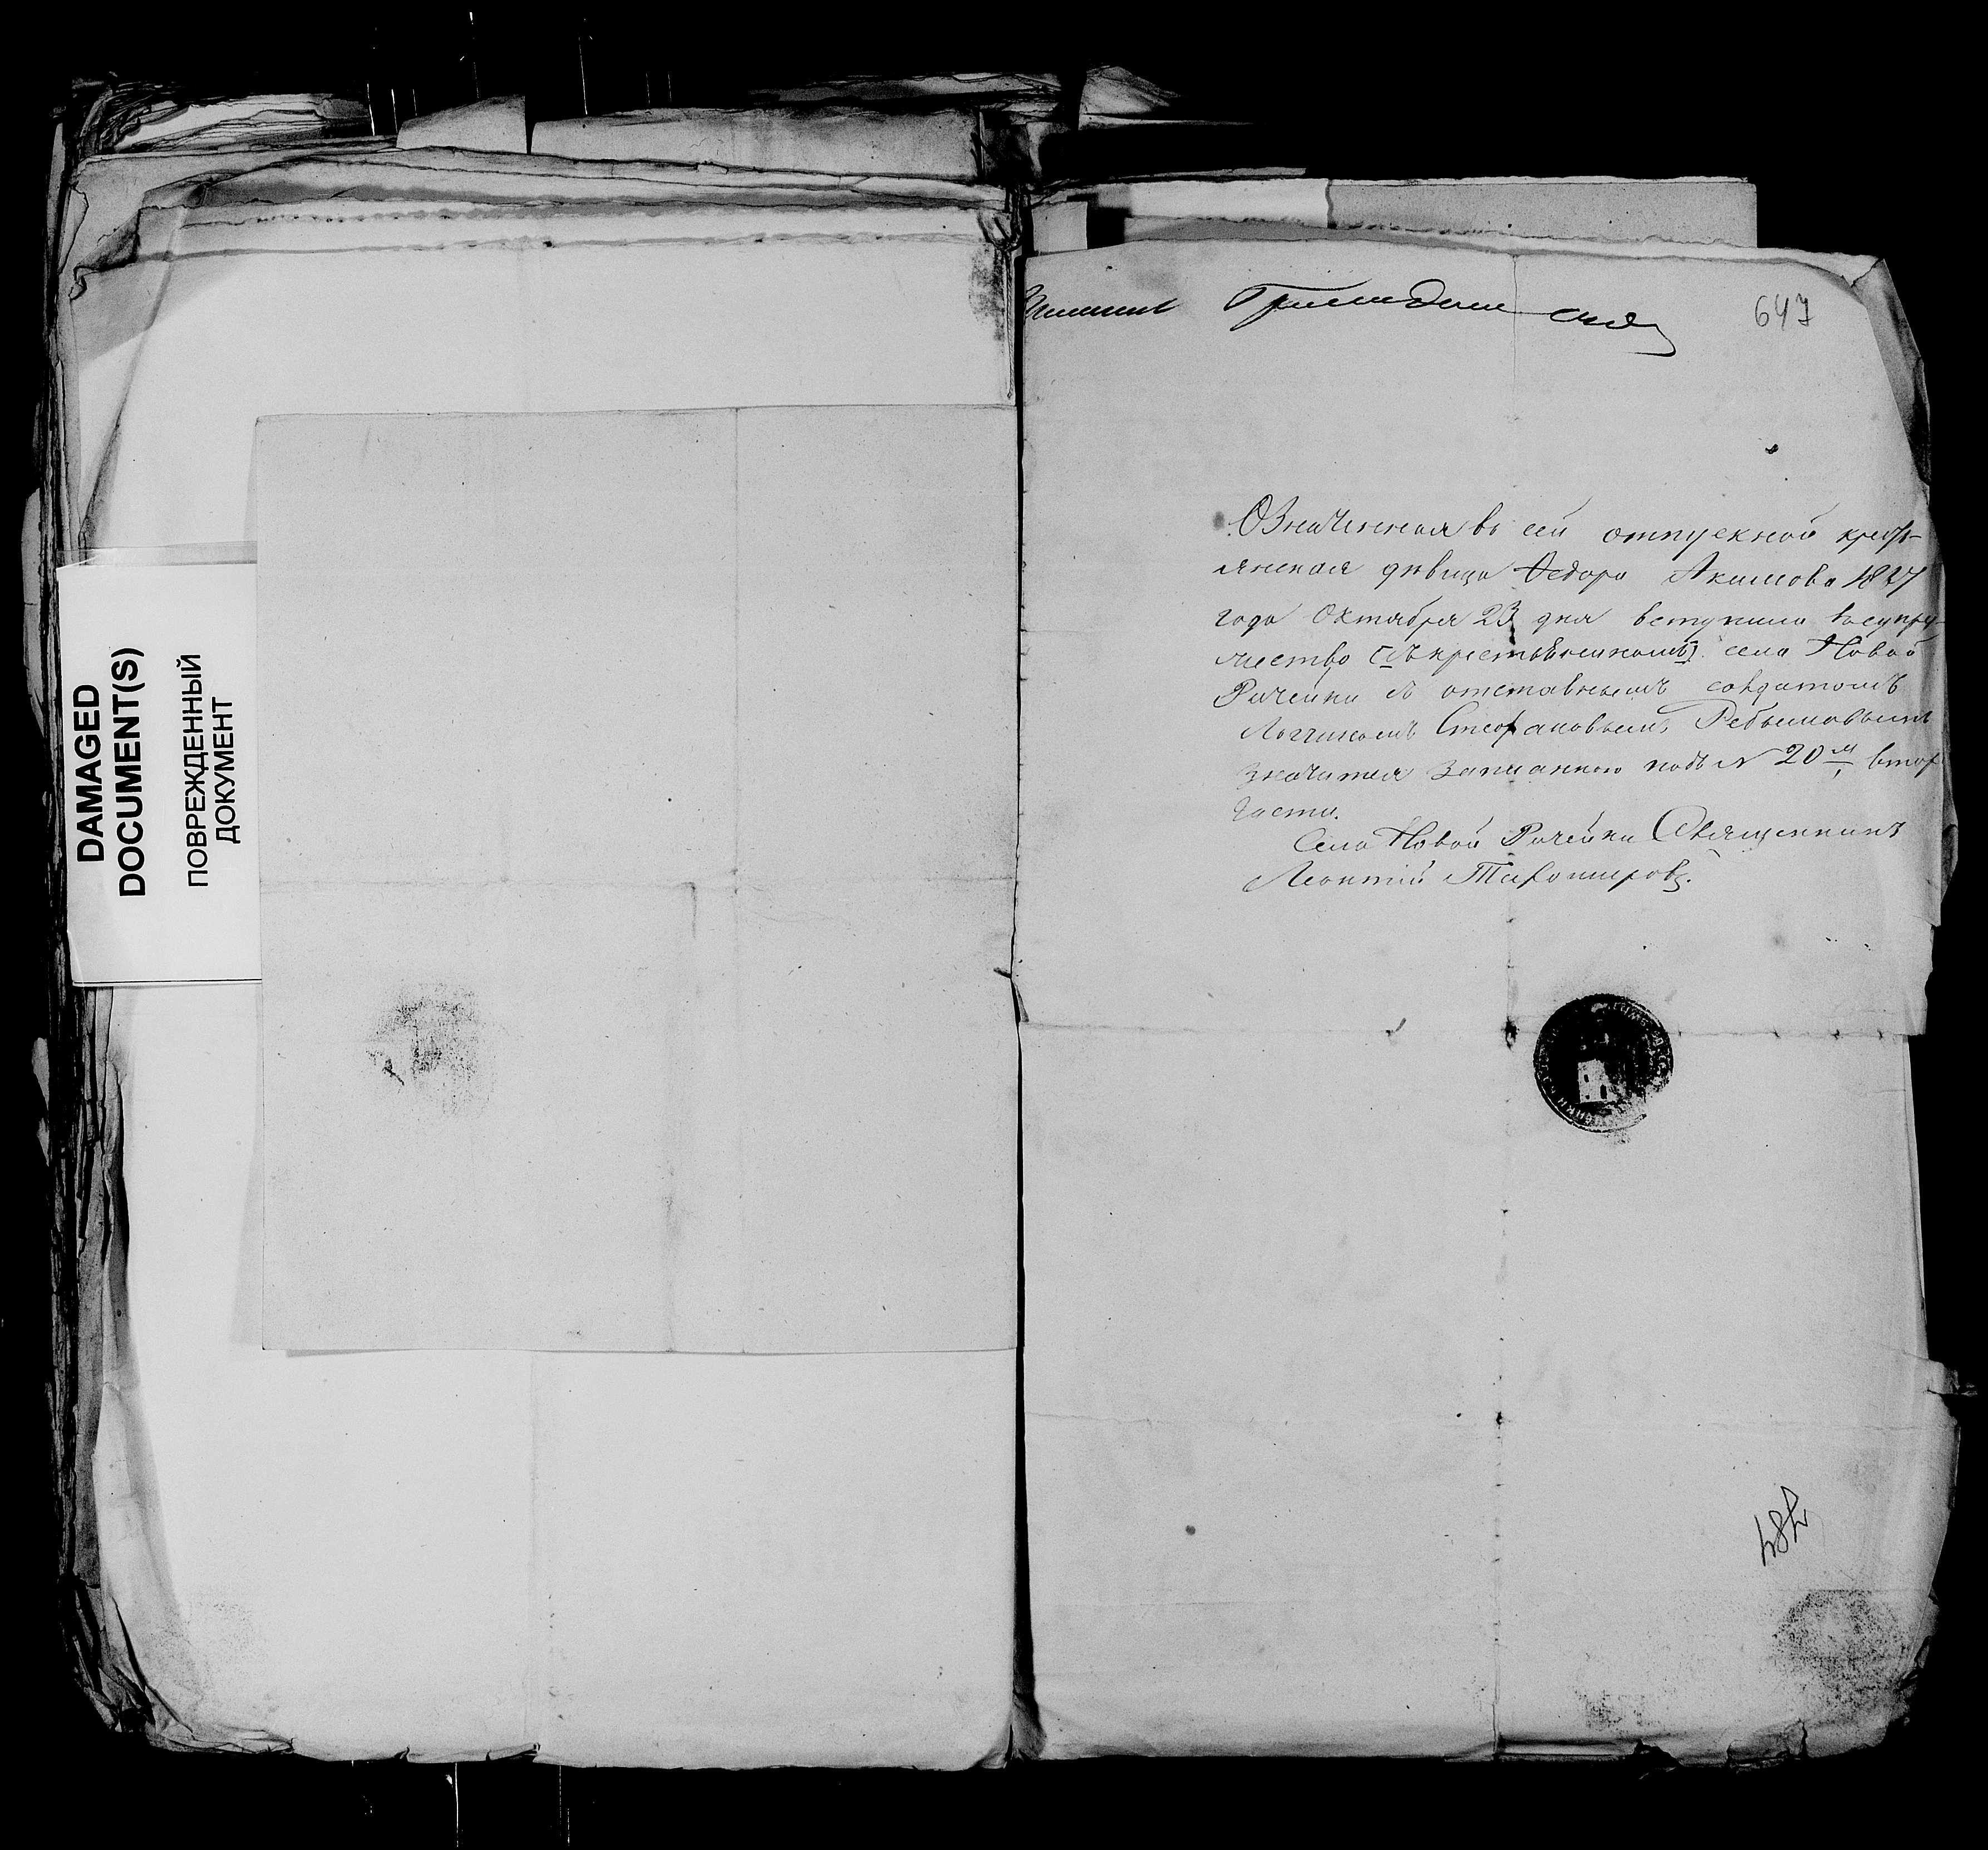 DAMAGED
DOCUMENT(S)
ПОВРЕЖДЕННЫЙ
ДОКУМЕНТ
647
Означенная въ сей отпускной кресть-
янская дѣвица Ѳедора Акимова 1827
года Октября 23 дня вступила въ супру-
жество [съ крестьяниномъ] села Новой
Рачейки съ отставнымъ солдатомъ
Логгиномъ Стефановымъ
значится записанною подъ № 20м втор
части.
Села Новой Рачейки Священникъ
Леонтій Тихомировъ.
484